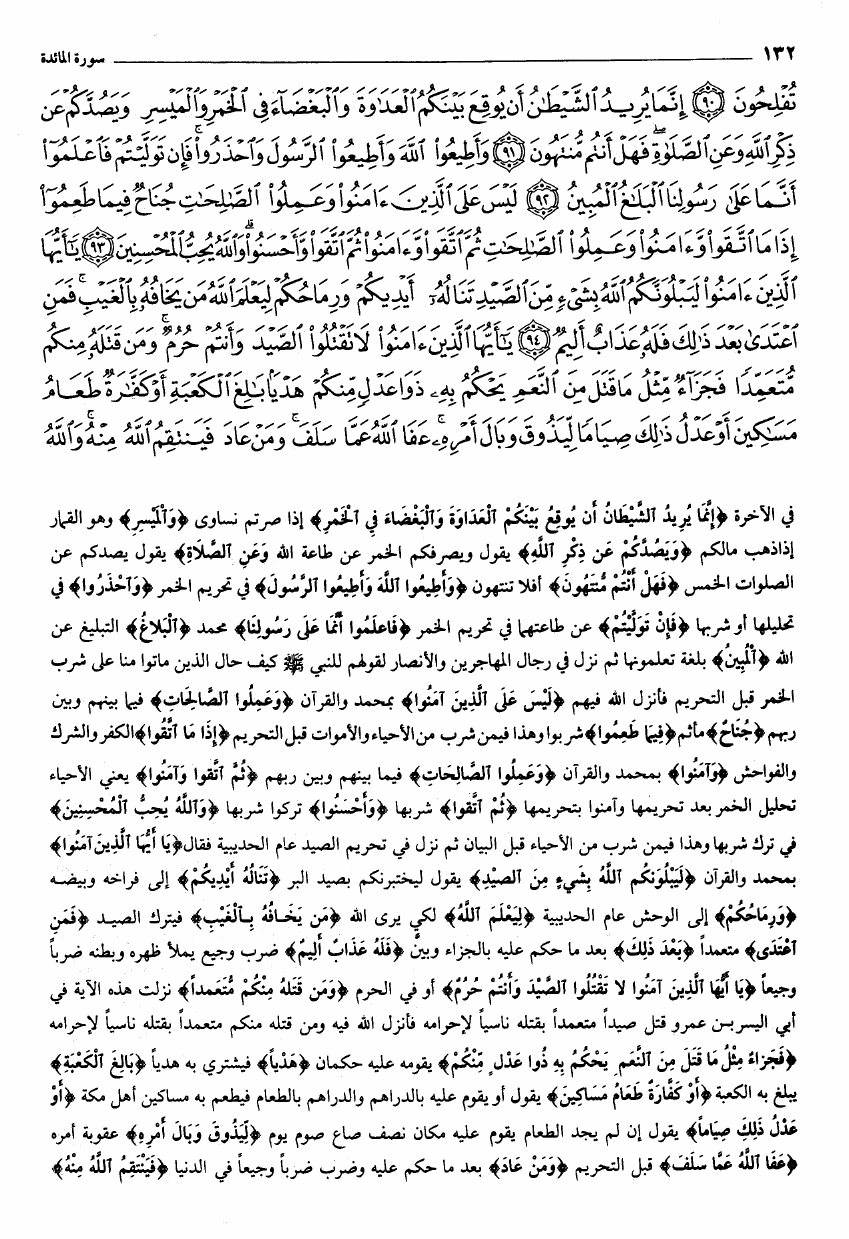 ١٣٢ سورة المائدة
تُفْلِحُونَ ﴿٩٠﴾ إِنَّمَا يُرِيدُ ٱلشَّيْطَٰنُ أَن يُوقِعَ بَيْنَكُمُ ٱلْعَدَٰوَةَ وَٱلْبَغْضَآءَ فِى ٱلْخَمْرِ وَٱلْمَيْسِرِ وَيَصُدَّكُمْ عَن
ذِكْرِ ٱللَّهِ وَعَنِ ٱلصَّلَوٰةِ ۖ فَهَلْ أَنتُم مُّنتَهُونَ ﴿٩١﴾ وَأَطِيعُوا۟ ٱللَّهَ وَأَطِيعُوا۟ ٱلرَّسُولَ وَٱحْذَرُوا۟ ۚ فَإِن تَوَلَّيْتُمْ فَٱعْلَمُوٓا۟
أَنَّمَا عَلَىٰ رَسُولِنَا ٱلْبَلَٰغُ ٱلْمُبِينُ ﴿٩٢﴾ لَيْسَ عَلَى ٱلَّذِينَ ءَامَنُوا۟ وَعَمِلُوا۟ ٱلصَّٰلِحَٰتِ جُنَاحٌ فِيمَا طَعِمُوٓا۟
إِذَا مَا ٱتَّقَوا۟ وَّءَامَنُوا۟ وَعَمِلُوا۟ ٱلصَّٰلِحَٰتِ ثُمَّ ٱتَّقَوا۟ وَّءَامَنُوا۟ ثُمَّ ٱتَّقَوا۟ وَّأَحْسَنُوا۟ ۗ وَٱللَّهُ يُحِبُّ ٱلْمُحْسِنِينَ ﴿٩٣﴾ يَٰٓأَيُّهَا
ٱلَّذِينَ ءَامَنُوا۟ لَيَبْلُوَنَّكُمُ ٱللَّهُ بِشَىْءٍ مِّنَ ٱلصَّيْدِ تَنَالُهُۥٓ أَيْدِيكُمْ وَرِمَاحُكُمْ لِيَعْلَمَ ٱللَّهُ مَن يَخَافُهُۥ بِٱلْغَيْبِ ۚ فَمَنِ
ٱعْتَدَىٰ بَعْدَ ذَٰلِكَ فَلَهُۥ عَذَابٌ أَلِيمٌ ﴿٩٤﴾ يَٰٓأَيُّهَا ٱلَّذِينَ ءَامَنُوا۟ لَا تَقْتُلُوا۟ ٱلصَّيْدَ وَأَنتُمْ حُرُمٌ ۚ وَمَن قَتَلَهُۥ مِنكُم
مُّتَعَمِّدًا فَجَزَآءٌ مِّثْلُ مَا قَتَلَ مِنَ ٱلنَّعَمِ يَحْكُمُ بِهِۦ ذَوَا عَدْلٍ مِّنكُمْ هَدْيًۢا بَٰلِغَ ٱلْكَعْبَةِ أَوْ كَفَّٰرَةٌ طَعَامُ
مَسَٰكِينَ أَوْ عَدْلُ ذَٰلِكَ صِيَامًا لِّيَذُوقَ وَبَالَ أَمْرِهِۦ ۗ عَفَا ٱللَّهُ عَمَّا سَلَفَ ۚ وَمَنْ عَادَ فَيَنتَقِمُ ٱللَّهُ مِنْهُ ۗ وَٱللَّهُ
في الآخرة ﴿إِنَّمَا يُرِيدُ ٱلشَّيْطَانُ أَن يُوقِعَ بَيْنَكُمُ ٱلْعَدَاوَةَ وَٱلْبَغْضَاءَ فِي ٱلْخَمْرِ﴾ إذا صرتم نساوى ﴿وَٱلْمَيْسِرِ﴾ وهو القمار
إذاذهب مالكم ﴿وَيَصُدَّكُمْ عَن ذِكْرِ ٱللَّهِ﴾ يقول ويصرفكم الخمر عن طاعة الله ﴿وَعَنِ ٱلصَّلَاةِ﴾ يقول يصدكم عن
الصلوات الخمس ﴿فَهَلْ أَنْتُمْ مُنْتَهُونَ﴾ أفلا تنتهون ﴿وَأَطِيعُوا ٱللَّهَ وَأَطِيعُوا ٱلرَّسُولَ﴾ في تحريم الخمر ﴿وَٱحْذَرُوا﴾ في
تحليلها أو شربها ﴿فَإِنْ تَوَلَّيْتُمْ﴾ عن طاعتهما في تحريم الخمر ﴿فَاعلَمُوا أَنَّمَا عَلَى رَسُولِنَا﴾ محمد ﴿ٱلْبَلاغُ﴾ التبليغ عن
الله ﴿ٱلْمُبِينُ﴾ بلغة تعلمونها ثم نزل في رجال المهاجرين والأنصار لقولهم للنبي ﷺ كيف حال الذين ماتوا منا على شرب
الخمر قبل التحريم فأنزل الله فيهم ﴿لَيْسَ عَلَى ٱلَّذِينَ آمَنُوا﴾ بمحمد والقرآن ﴿وَعَمِلُوا ٱلصَّالِحَاتِ﴾ فيما بينهم وبين
ربهم ﴿جُنَاحٌ﴾ مأثم ﴿فِيمَا طَعِمُوا﴾ شربوا وهذا فيمن شرب من الأحياء والأموات قبل التحريم ﴿إِذَا مَا ٱتَّقُوا﴾ الكفر والشرك
والفواحش ﴿وَآمَنُوا﴾ بمحمد والقرآن ﴿وَعَمِلُوا ٱلصَّالِحَاتِ﴾ فيما بينهم وبين ربهم ﴿ثُمَّ ٱتَّقوا وَآمَنُوا﴾ يعني الأحياء
تحليل الخمر بعد تحريمها وآمنوا بتحريمها ﴿ثُمَّ ٱتَّقوا﴾ شربها ﴿وَأَحْسَنُوا﴾ تركوا شربها ﴿وَٱللَّهُ يُحِبُّ ٱلْمُحْسِنِينَ﴾
في ترك شربها وهذا فيمن شرب من الأحياء قبل البيان ثم نزل في تحريم الصيد عام الحديبية فقال ﴿يَا أَيُّهَا ٱلَّذِينَ آمَنُوا﴾
بمحمد والقرآن ﴿لَيَبْلُوَنكُم ٱللَّهُ بِشَيءٍ مِنَ ٱلصيْدِ﴾ يقول ليختبرنكم بصيد البر ﴿تَنَالُهُ أَيْدِيكُمْ﴾ إلى فراخه وبيضه
﴿وَرِمَاحُكُمْ﴾ إلى الوحش عام الحديبية ﴿لِيَعْلَمَ ٱللَّهُ﴾ لكي يرى الله ﴿مَن يَخَافُهُ بِالْغَيْبِ﴾ فيترك الصيد ﴿فَمَنِ
ٱعْتَدَى﴾ متعمداً ﴿بَعْدَ ذَلِكَ﴾ بعد ما حكم عليه بالجزاء وبيَّن ﴿فَلَهُ عَذَابٌ أَلِيمٌ﴾ ضرب وجيع يملأ ظهره وبطنه ضرباً
وجيعاً ﴿يَا أَيُّهَا ٱلَّذِينَ آمَنُوا لا تَقْتُلُوا ٱلصَّيْدَ وَأَنْتُمْ حُرُمٌ﴾ أو في الحرم ﴿وَمَن قَتَلَهُ مِنْكُمْ مُتَعَمداً﴾ نزلت هذه الآية في
أبي اليسر بن عمرو قتل صيداً متعمداً بقتله ناسياً لإحرامه فأنزل الله فيه ومن قتله منكم متعمداً بقتله ناسياً لإحرامه
﴿فَجَزاءٌ مِثْلُ مَا قَتَلَ مِنَ ٱلنَّعَمِ يَحْكُمُ بِهِ ذُوا عَدْلٍ مِنْكُمْ﴾ يقومه عليه حكمان ﴿هَدْياً﴾ فيشتري به هدياً ﴿بَالِغَ ٱلْكَعْبَةِ﴾
يبلغ به الكعبة ﴿أَوْ كَفَّارَةٌ طَعَامُ مَسَاكِينَ﴾ يقول أو يقوم عليه بالدراهم والدراهم بالطعام فيطعم به مساكين أهل مكة ﴿أَوْ
عَدْلُ ذَلِكَ صِيَاماً﴾ يقول إن لم يجد الطعام يقوم عليه مكان نصف صاع صوم يوم ﴿لِيَذُوقَ وَبَالَ أَمْرِهِ﴾ عقوبة أمره
﴿عَفَا ٱللَّهُ عَمَّا سَلَفَ﴾ قبل التحريم ﴿وَمَنْ عَادَ﴾ بعد ما حكم عليه وضرب ضرباً وجيعاً في الدنيا ﴿فَيَنْتَقِمُ ٱللَّهُ مِنْهُ﴾